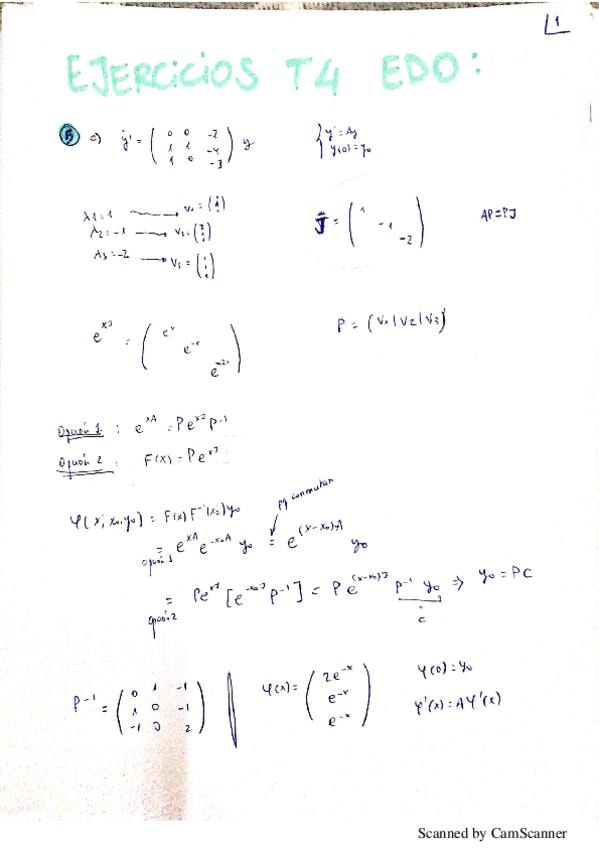 1
EJERCICIOS T4 EDO:
5 c) y' = ( 0 0 -2 / 1 1 -4 / 1 0 -3 ) y { y' = Ay / y(0) = y0
λ1 = 1 → v1 =
λ2 = -1 → v2 =
λ3 = -2 → v3 =
J = ( 1 / -1 / -2 ) AP = PJ
e^{xJ} = ( e^x / e^{-x} / e^{-2x} ) P = (v1|v2|v3)
Opción 1: e^{xA} = Pe^{xJ}P^{-1}
Opción 2: F(x) = Pe^{xJ}
φ(x; x0, y0) = F(x)F^{-1}(x0)y0 conmutan
= e^{xA} e^{-x0A} y0 = e^{(x-x0)A} y0
opción 1
= Pe^{xJ} [e^{-x0J} P^{-1}] = Pe^{(x-x0)J} P^{-1} y0 ⇒ y0 = PC
opción 2 c
P^{-1} = ( 0 1 -1 / 1 0 -1 / -1 0 2 ) φ(x) = ( 2e^{-x} / e^{-x} / e^{-x} ) φ(0) = y0
φ'(x) = Aφ'(x)
Scanned by CamScanner